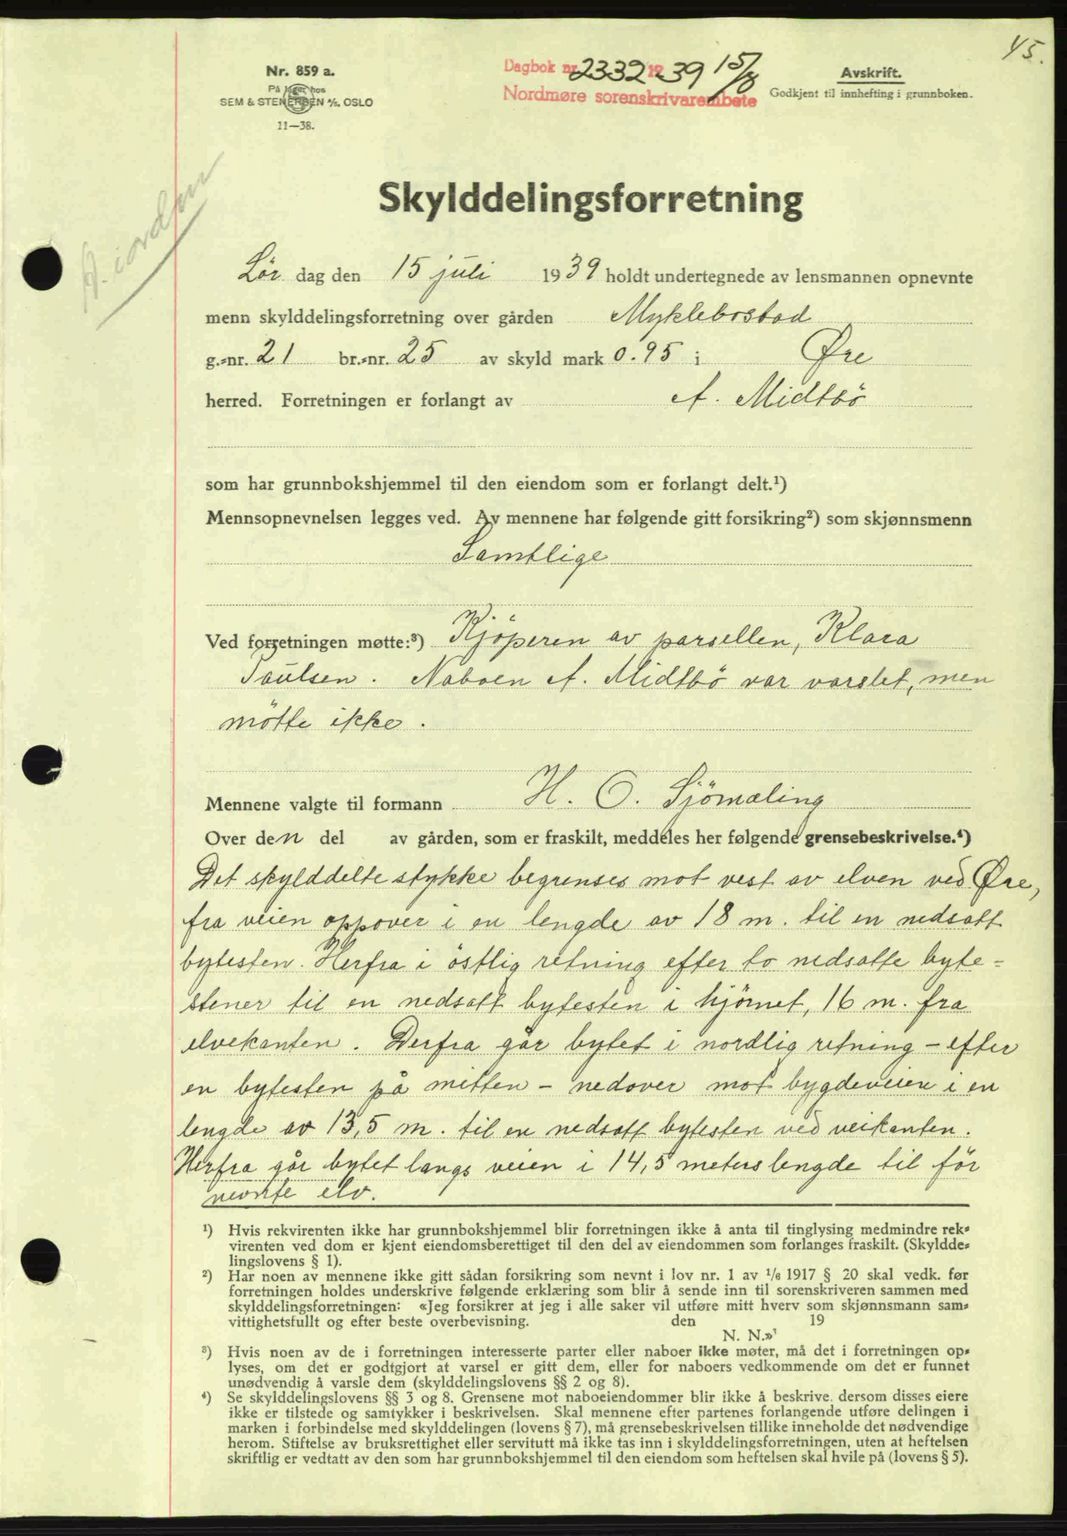 45.
Nr. 859 a.
På lager hos
SEM & STENERSEN A/S, OSLO
11—38.
Dagbok nr. 2332 1939 15/8
Nordmøre sorenskrivarembete
Avskrift.
Godkjent til innhefting i grunnboken.
Skylddelingsforretning
Lör dag den 15 juli 1939 holdt undertegnede av lensmannen opnevnte
menn skylddelingsforretning over gården Myklebostad
g.-nr. 21 br.-nr. 25 av skyld mark 0.95 i Øre
herred. Forretningen er forlangt av A. Midtbö
som har grunnbokshjemmel til den eiendom som er forlangt delt.¹)
Mennsopnevnelsen legges ved. Av mennene har følgende gitt forsikring²) som skjønnsmenn
Samtlige
Ved forretningen møtte:³) Kjöperen av parsellen, Klara
Paulsen. Naboen A. Midtbö var varslet, men
mötte ikke.
Mennene valgte til formann H. O. Sjömæling
Over den del av gården, som er fraskilt, meddeles her følgende grensebeskrivelse.⁴)
Det skylddelte stykke begrenses mot vest av elven ved Øre,
fra veien oppover i en lengde av 18 m. til en nedsatt
bytesten. Herfra i östlig retning efter to nedsatte byte=
stener til en nedsatt bytesten i hjörnet, 16 m. fra
elvekanten. Derfra går bytet i nordlig retning - efter
en bytesten på mitten - nedover mot bygdeveien i en
lengde av 13,5 m. til en nedsatt bytesten ved veikanten.
Herfra går bytet langs veien i 14,5 meters lengde til för
nevnte elv.
¹) Hvis rekvirenten ikke har grunnbokshjemmel blir forretningen ikke å anta til tinglysing medmindre rek-
virenten ved dom er kjent eiendomsberettiget til den del av eiendommen som forlanges fraskilt. (Skyldde-
lingslovens § 1).
²) Har noen av mennene ikke gitt sådan forsikring som nevnt i lov nr. 1 av ¹/₆ 1917 § 20 skal vedk. før
forretningen holdes underskrive følgende erklæring som blir å sende inn til sorenskriveren sammen med
skylddelingsforretningen: «Jeg forsikrer at jeg i alle saker vil utføre mitt hverv som skjønnsmann sam-
vittighetsfullt og efter beste overbevisning. den 19
N. N.»
³) Hvis noen av de i forretningen interesserte parter eller naboer ikke møter, må det i forretningen op-
lyses, om det er godtgjort at varsel er gitt dem, eller for naboers vedkommende om det er funnet
unødvendig å varsle dem (skylddelingslovens §§ 2 og 8).
⁴) Se skylddelingslovens §§ 3 og 8. Grensene mot naboeiendommer blir ikke å beskrive, dersom disses eiere
ikke er tilstede og samtykker i beskrivelsen. Skal mennene efter partenes forlangende utføre delingen i
marken i forbindelse med skylddelingen (lovens § 7), må grensebeskrivelsen tillike inneholde det nødvendige
herom. Stiftelse av bruksrettighet eller servitutt må ikke tas inn i skylddelingsforretningen, uten at heftelsen
skriftlig er vedtatt av den som har grunnbokshjemmel til den eiendom som heftelsen skal hvile på (lovens § 5).